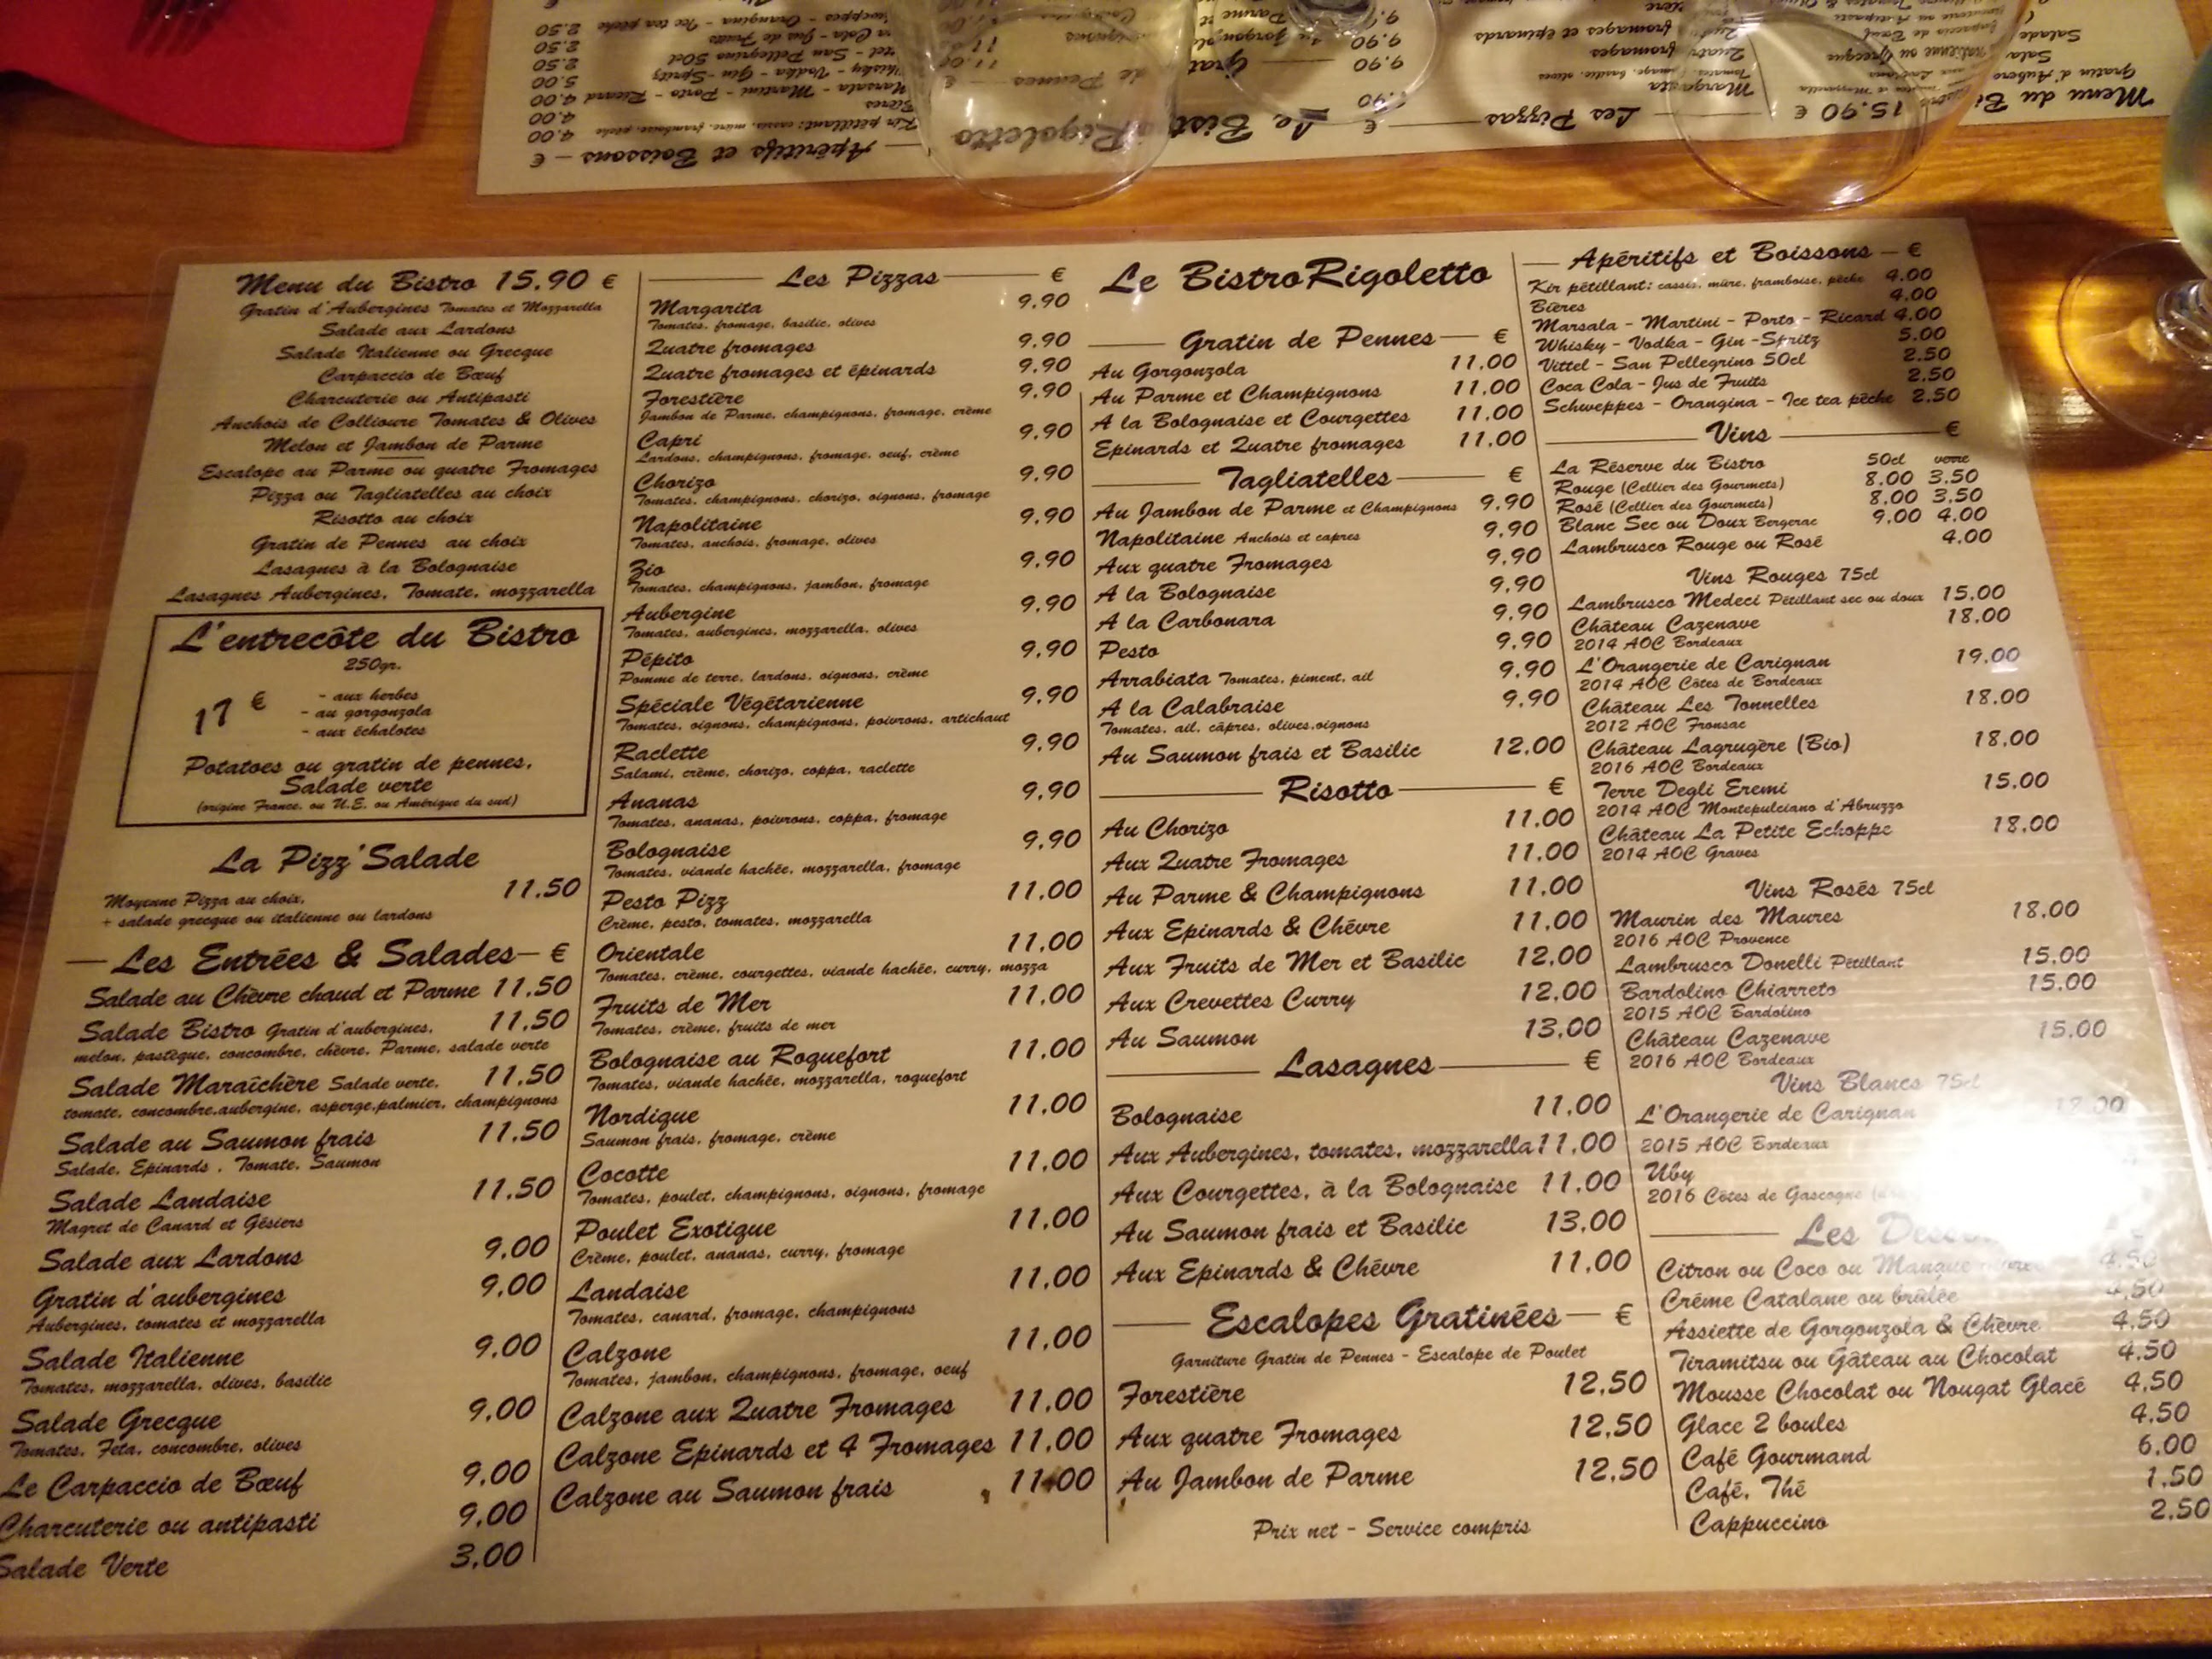 Menu du Bistro 15.90 €
Gratin d'Aubergines Tomates et Mozzarella
Salade aux Lardons
Salade Italienne ou Grecque
Carpaccio de Bœuf
Charcuterie ou Antipasti
Anchois de Collioure Tomates & Olives
Melon et Jambon de Parme
Escalope au Parme ou quatre Fromages
Pizza ou Tagliatelles au choix
Risotto au choix
Gratin de Pennes au choix
Lasagnes à la Bolognaise
Lasagnes Aubergines, Tomate, mozzarella
L'entrecôte du Bistro
250gr.
17 €
- aux herbes
- au gorgonzola
- aux échalotes
Potatoes ou gratin de pennes,
Salade verte
(origine France, ou U.E. ou Amérique du sud)
La Pizz'Salade
Moyenne Pizza au choix, 11.50
+ salade grecque ou italienne ou lardons
Les Entrées & Salades €
Salade au Chèvre chaud et Parme 11.50
Salade Bistro Gratin d'aubergines, 11.50
melon, pastèque, concombre, chèvre, Parme, salade verte
Salade Maraîchère Salade verte, 11.50
tomate, concombre,aubergine, asperge,palmier, champignons
Salade au Saumon frais 11.50
Salade, Epinards , Tomate, Saumon
Salade Landaise 11.50
Magret de Canard et Gésiers
Salade aux Lardons 9.00
Gratin d'aubergines 9.00
Aubergines, tomates et mozzarella
Salade Italienne 9.00
Tomates, mozzarella, olives, basilic
Salade Grecque 9.00
Tomates, Feta, concombre, olives
Le Carpaccio de Bœuf 9.00
Charcuterie ou antipasti 9.00
Salade Verte 3.00
Les Pizzas €
Margarita 9.90
Tomates, fromage, basilic, olives
Quatre fromages 9.90
Quatre fromages et épinards 9.90
Forestière 9.90
Jambon de Parme, champignons, fromage, crème
Capri 9.90
Lardons, champignons, fromage, oeuf, crème
Chorizo 9.90
Tomates, champignons, chorizo, oignons, fromage
Napolitaine 9.90
Tomates, anchois, fromage, olives
Zio 9.90
Tomates, champignons, jambon, fromage
Aubergine 9.90
Tomates, aubergines, mozzarella, olives
Pépito 9.90
Pomme de terre, lardons, oignons, crème
Spéciale Végétarienne 9.90
Tomates, oignons, champignons, poivrons, artichaut
Raclette 9.90
Salami, crème, chorizo, coppa, raclette
Ananas 9.90
Tomates, ananas, poivrons, coppa, fromage
Bolognaise 9.90
Tomates, viande hachée, mozzarella, fromage
Pesto Pizz 11.00
Crème, pesto, tomates, mozzarella
Orientale 11.00
Tomates, crème, courgettes, viande hachée, curry, mozza
Fruits de Mer 11.00
Tomates, crème, fruits de mer
Bolognaise au Roquefort 11.00
Tomates, viande hachée, mozzarella, roquefort
Nordique 11.00
Saumon frais, fromage, crème
Cocotte 11.00
Tomates, poulet, champignons, oignons, fromage
Poulet Exotique 11.00
Crème, poulet, ananas, curry, fromage
Landaise 11.00
Tomates, canard, fromage, champignons
Calzone 11.00
Tomates, jambon, champignons, fromage, oeuf
Calzone aux Quatre Fromages 11.00
Calzone Epinards et 4 Fromages 11.00
Calzone au Saumon frais 11.00
Le BistroRigoletto
Gratin de Pennes €
Au Gorgonzola 11.00
Au Parme et Champignons 11.00
A la Bolognaise et Courgettes 11.00
Epinards et Quatre fromages 11.00
Tagliatelles €
Au Jambon de Parme et Champignons 9.90
Napolitaine Anchois et capres 9.90
Aux quatre Fromages 9.90
A la Bolognaise 9.90
A la Carbonara 9.90
Pesto 9.90
Arrabiata Tomates, piment, ail 9.90
A la Calabraise 9.90
Tomates, ail, câpres, olives,oignons
Au Saumon frais et Basilic 12.00
Risotto €
Au Chorizo 11.00
Aux Quatre Fromages 11.00
Au Parme & Champignons 11.00
Aux Epinards & Chévre 11.00
Aux Fruits de Mer et Basilic 12.00
Aux Crevettes Curry 12.00
Au Saumon 13.00
Lasagnes €
Bolognaise 11.00
Aux Aubergines, tomates, mozzarella 11.00
Aux Courgettes, à la Bolognaise 11.00
Au Saumon frais et Basilic 13.00
Aux Epinards & Chévre 11.00
Escalopes Gratinées €
Garniture Gratin de Pennes - Escalope de Poulet
Forestière 12.50
Aux quatre Fromages 12.50
Au Jambon de Parme 12.50
Prix net - Service compris
Apéritifs et Boissons €
Kir pétillant: cassis, mûre, framboise, pêche 4.00
Bières 4.00
Marsala - Martini - Porto - Ricard 4.00
Whisky - Vodka - Gin -Spritz 5.00
Vittel - San Pellegrino 50cl 2.50
Coca Cola - Jus de Fruits 2.50
Schweppes - Orangina - Ice tea pêche 2.50
Vins €
La Réserve du Bistro 50cl verre
Rouge (Cellier des Gourmets) 8.00 3.50
Rosé (Cellier des Gourmets) 8.00 3.50
Blanc Sec ou Doux Bergerac 9.00 4.00
Lambrusco Rouge ou Rosé 4.00
Vins Rouges 75cl
Lambrusco Medeci Pétillant sec ou doux 15.00
Château Cazenave 18.00
2014 AOC Bordeaux
L'Orangerie de Carignan 19.00
2014 AOC Côtes de Bordeaux
Château Les Tonnelles 18.00
2012 AOC Fronsac
Château Lagrugère (Bio) 18.00
2016 AOC Bordeaux
Terre Degli Eremi 15.00
2014 AOC Montepulciano d'Abruzzo
Château La Petite Echoppe 18.00
2014 AOC Graves
Vins Rosés 75cl
Maurin des Maures 18.00
2016 AOC Provence
Lambrusco Donelli Pétillant 15.00
Bardolino Chiarreto 15.00
2015 AOC Bardolino
Château Cazenave 15.00
2016 AOC Bordeaux
Vins Blancs 75cl
L'Orangerie de Carignan
2015 AOC Bordeaux
Uby
2016 Côtes de Gascogne
Les
Citron ou Coco ou Mangue 4.50
Créme Catalane ou brûlée 4.50
Assiette de Gorgonzola & Chèvre 4.50
Tiramitsu ou Gâteau au Chocolat 4.50
Mousse Chocolat ou Nougat Glacé 4.50
Glace 2 boules 4.50
Café Gourmand 6.00
Café, Thé 1.50
Cappuccino 2.50
Apéritifs et Boissons €
Kir pétillant: cassis, mûre, framboise, pêche 4.00
Bières 4.00
Marsala - Martini - Porto - Ricard 4.00
Whisky - Vodka - Gin -Spritz 5.00
San Pellegrino 50cl 2.50
Cola - Jus de Fruits 2.50
Orangina - Ice tea pêche 2.50
Rigoletto
de Pennes €
Les Pizzas €
Margarita 9.90
Quatre fromages 9.90
fromages et épinards 9.90
Menu du 15.90 €
Gratin